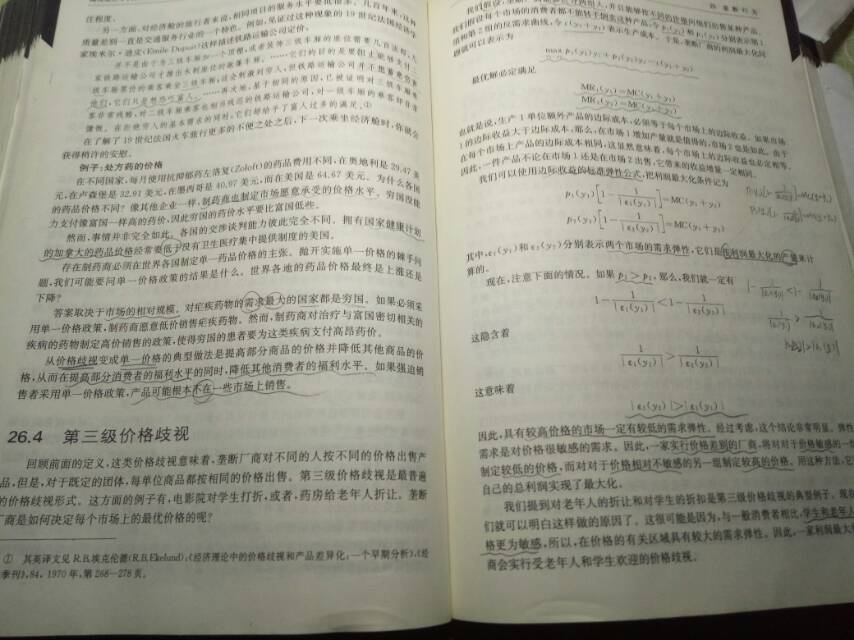 往程度。
另一方面,对经济舱的旅行者来说,相同项目的服务水平要低很多。几百年来,这种
质量差别一直是交通服务行业的一个特色。例如,见证过这种现象的19世纪法国经济学
家埃米尔·迪皮(Emile Dupuit)这样描述铁路运输公司定价:
并不是由于为三级车厢加一个顶棚,或者装饰三级车厢的座位需要几百法郎,
他们,它们只是想恐吓富人。
在了解了19世纪法国火车旅行更多的不便之处之后,下一次乘坐经济舱时,你就会
获得稍许的安慰。
例子:处方药的价格
在不同国家,每月使用抗抑郁药左洛复(Zoloft)的药品费用不同,在奥地利是29.47美
元,在卢森堡是32.91美元,在墨西哥是40.97美元,而在美国是64.67美元。为什么各国
的药品价格不同?像其他企业一样,制药商也制定市场愿意承受的价格水平。穷国没能
力支付像富国一样高的药价,因此穷国的药价水平要比富国低些。
然而,事情并非完全如此。各国的交涉谈判能力彼此完全不同。拥有国家健康计划
的加拿大的药品价格经常要低于没有卫生医疗集中提供制度的美国。
存在制药商必须在世界各国制定单一药品价格的主张。抛开实施单一价格的棘手问
题,我们可能要问单一价格政策的结果是什么。世界各地的药品价格最终是上涨还是
下降?
答案取决于市场的相对规模。对疟疾药物的需求最大的国家都是穷国。如果必须采
用单一价格政策,制药商愿意低价销售疟疾药物。然而,制药商对治疗与富国密切相关的
疾病的药物制定高价销售的政策,使得穷国的患者要为这类疾病支付高昂药价。
从价格歧视变成单一价格的典型做法是提高部分商品的价格并降低其他商品的价
格,从而在提高部分消费者的福利水平的同时,降低其他消费者的福利水平。如果强迫销
售者采用单一价格政策,产品可能根本不在一些市场上销售。
26.4 第三级价格歧视
回顾前面的定义,这类价格歧视意味着,垄断厂商对不同的人按不同的价格出售产
品,但是,对于既定的团体,每单位商品都按相同的价格出售。第三级价格歧视是最普遍
的价格歧视形式。这方面的例子有,电影院对学生打折,或者,药房给老年人折让。垄断
厂商是如何决定每个市场上的最优价格的呢?
① 其英译文见R.B.埃克伦德(R.B.Ekelund):《经济理论中的价格歧视和产品差异化:一个早期分析》,《经
季刊》,84,1970年,第268—278页。
26 垄断行为
我们假设每个市场的消费者都不能转手倒卖这种产品。
max p₁(y₁)y₁+p₂(y₂)y₂-c(y₁+y₂)
最优解必定满足
MR₁(y₁)=MC(y₁+y₂)
MR₂(y₂)=MC(y₁+y₂)
也就是说,生产1单位额外产品的边际成本,必须等于每个市场上的边际收益。如果市场
1的边际收益大于边际成本,那么,在市场1增加产量就是值得的,市场2也是如此。由于
在每个市场上产品的边际成本相同,这显然意味着,每个市场上的边际收益也必定相等。
因此,一件产品不论在市场1还是在市场2出售,它带来的收益增量一定相同。
我们可以使用边际收益的标准弹性公式,把利润最大化条件记为
p₁(y₁)[1-1/|ε₁(y₁)|]=MC(y₁+y₂)
p₂(y₂)[1-1/|ε₂(y₂)|]=MC(y₁+y₂)
其中,ε₁(y₁)和ε₂(y₂)分别表示两个市场的需求弹性,它们是按利润最大化的产量来计
算的。
现在,注意下面的情况。如果p₁>p₂,那么,我们就一定有
1-1/|ε₁(y₁)|<1-1/|ε₂(y₂)|
这隐含着
1/|ε₁(y₁)|>1/|ε₂(y₂)|
这意味着
|ε₂(y₂)|>|ε₁(y₁)|
因此,具有较高价格的市场一定有较低的需求弹性。经过考虑,这个结论非常明显。弹性
需求是对价格很敏感的需求。因此,一家实行价格差别的厂商,将对对于价格敏感的一组
制定较低的价格,而对对于价格相对不敏感的另一组制定较高的价格。用这种方法,它
自己的总利润实现了最大化。
我们提到对老年人的折让和对学生的折扣是第三级价格歧视的典型例子。现在
们就可以明白这样做的原因了。这很可能是因为,与一般消费者相比,学生和老年人
格更为敏感,所以,在价格的有关区域具有较大的需求弹性。因此,一家利润最大化
商会实行受老年人和学生欢迎的价格歧视。